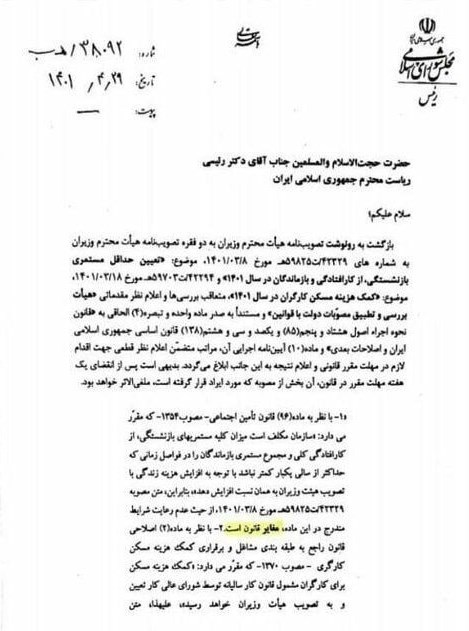 باسمه تعالی
جمهوری اسلامی ایران
مجلس شورای اسلامی
رئیس
شماره: ۳۸۰۹۲/هـ ب
تاریخ: ۱۴۰۱/۴/۲۹
پیوست: —
حضرت حجت‌الاسلام والمسلمین جناب آقای دکتر رئیسی
ریاست محترم جمهوری اسلامی ایران
سلام علیکم؛
بازگشت به رونوشت تصویب‌نامه هیأت محترم وزیران به دو فقره تصویب‌نامه هیأت محترم وزیران
به شماره های ۴۲۳۲۹/ت۵۹۸۲۵هـ مورخ ۱۴۰۱/۰۳/۸، موضوع: «تعیین حداقل مستمری
بازنشستگی، از کارافتادگی و بازماندگان در سال ۱۴۰۱» و ۴۲۲۹۴/ت۵۹۷۰۳هـ مورخ ۱۴۰۱/۰۳/۱۸،
موضوع: «کمک هزینه مسکن کارگران در سال ۱۴۰۱»، متعاقب بررسی‌ها و اعلام نظر مقدماتی «هیأت
بررسی و تطبیق مصوبات دولت با قوانین» و مستنداً به صدر ماده واحده و تبصره(۴) الحاقی به «قانون
نحوه اجراء اصول هشتاد و پنجم(۸۵) و یکصد و سی و هشتم(۱۳۸) قانون اساسی جمهوری اسلامی
ایران و اصلاحات بعدی» و ماده(۱۰) آیین‌نامه اجرایی آن، مراتب متضمّن اعلام نظر قطعی جهت اقدام
لازم در مهلت مقرر قانونی و اعلام نتیجه به این جانب ابلاغ می‌گردد. بدیهی است پس از انقضای یک
هفته مهلت مقرر در قانون، آن بخش از مصوبه که مورد ایراد قرار گرفته است، ملغی‌الاثر خواهد بود.
«۱- با نظر به ماده(۹۶) قانون تأمین اجتماعی-مصوب۱۳۵۴- که مقرّر
می دارد: «سازمان مکلف است میزان کلیه مستمریهای بازنشستگی، از
کارافتادگی کلی و مجموع مستمری بازماندگان را در فواصل زمانی که
حداکثر از سالی یکبار کمتر نباشد با توجه به افزایش هزینه زندگی با
تصویب هیئت وزیران به همان نسبت افزایش دهد»، بنابراین، متن مصوبه
۴۲۳۲۹/ت۵۹۸۲۵هـ مورخ ۱۴۰۱/۰۳/۸، از حیث عدم رعایت شرایط
مندرج در این ماده، مغایر قانون است.۲- با نظر به ماده(۲) اصلاحی
قانون راجع به طبقه بندی مشاغل و برقراری کمک هزینه مسکن
کارگری - مصوب ۱۳۷۰- که مقرّر می دارد: «کمک هزینه مسکن
برای کارگران مشمول قانون کار سالیانه توسط شورای عالی کار تعیین
و به تصویب هیأت وزیران خواهد رسید»، علیهذا، متن